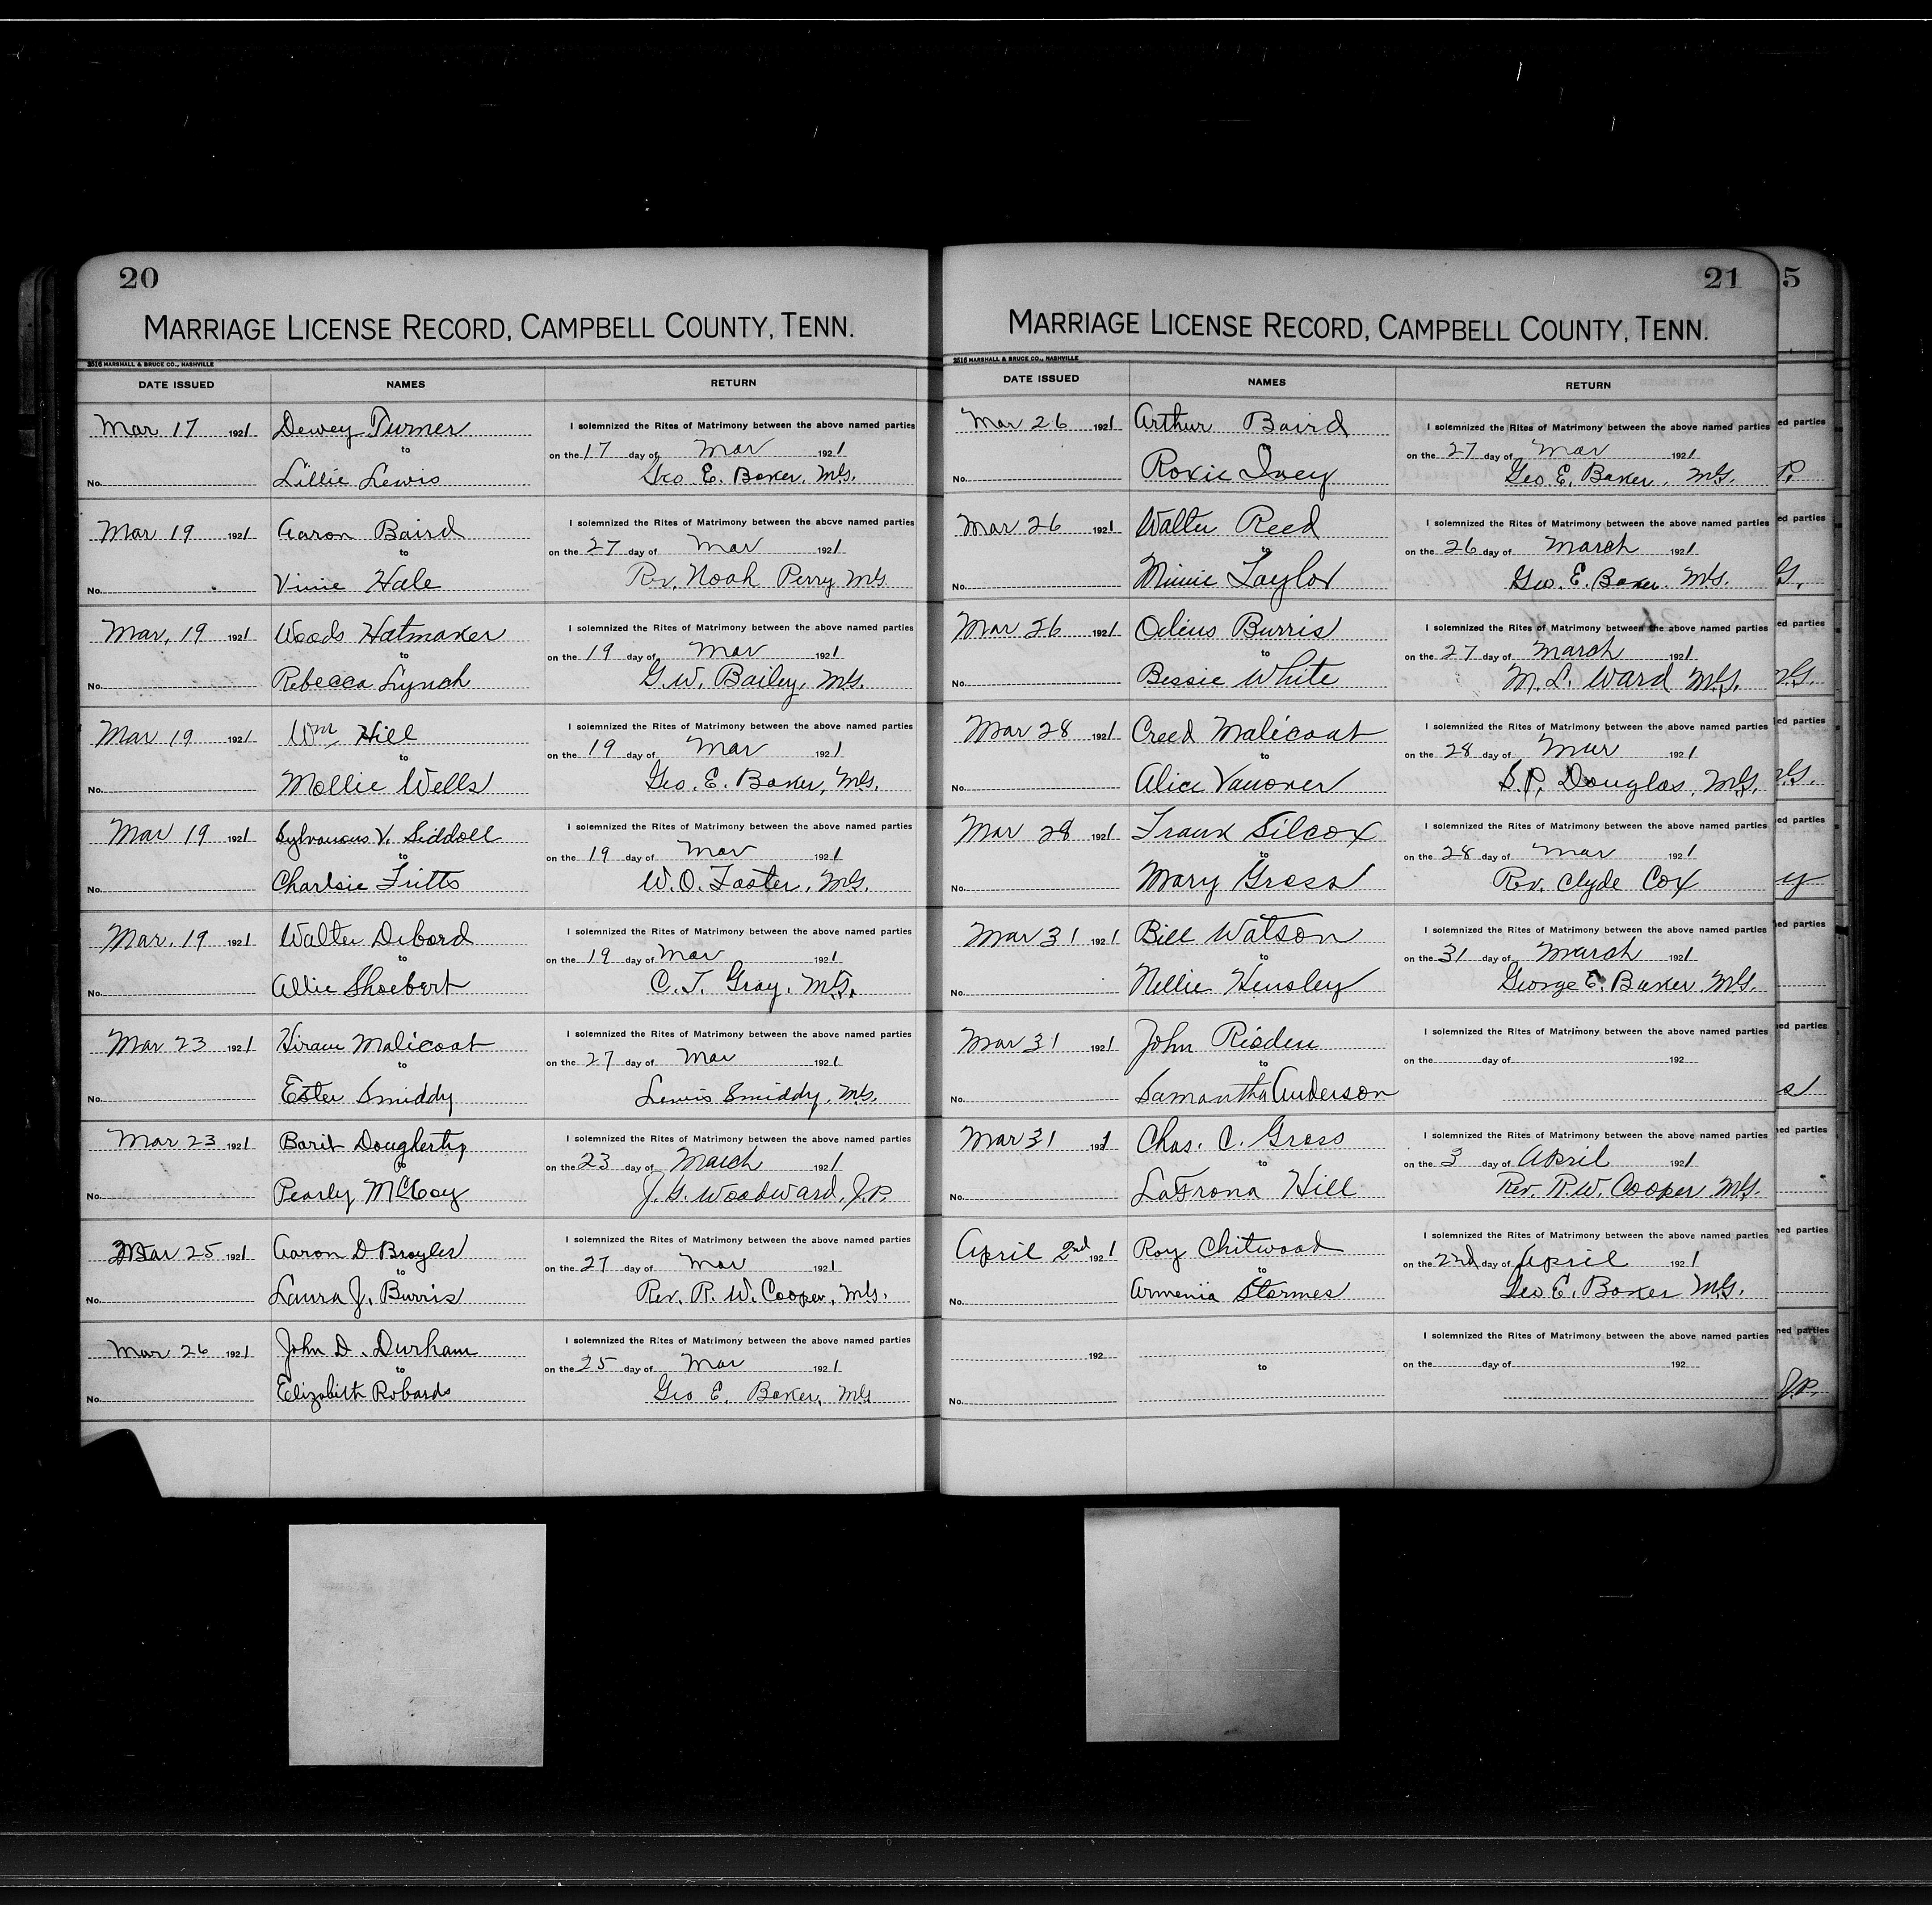 20
MARRIAGE LICENSE RECORD, CAMPBELL COUNTY, TENN.
2516 MARSHALL & BRUCE CO., NASHVILLE
DATE ISSUED NAMES RETURN
Mar 17 1921 Dewey Turner I solemnized the Rites of Matrimony between the above named parties
to on the 17 day of Mar 1921
No. Lillie Lewis Geo. E. Baker, M.G.
Mar 19 1921 Aaron Baird I solemnized the Rites of Matrimony between the above named parties
to on the 27 day of Mar 1921
No. Vinie Hale Rev. Noah Perry M.G.
Mar, 19 1921 Woods Hatmaker I solemnized the Rites of Matrimony between the above named parties
to on the 19 day of Mar 1921
No. Rebecca Lynch G.W. Bailey, M.G.
Mar 19 1921 Wm Hill I solemnized the Rites of Matrimony between the above named parties
to on the 19 day of Mar 1921
No. Mollie Wells Geo. E. Baker, M.G.
Mar 19 1921 Sylvanous V. Siddoll I solemnized the Rites of Matrimony between the above named parties
to on the 19 day of Mar 1921
No. Charlsie Fritts W.O. Foster, M.G.
Mar. 19 1921 Walter Debord I solemnized the Rites of Matrimony between the above named parties
to on the 19 day of Mar 1921
No. Allie Shoebert C.T. Gray, M.G.
Mar 23 1921 Hiram Malicoat I solemnized the Rites of Matrimony between the above named parties
to on the 27 day of Mar 1921
No. Ester Smiddy Lewis Smiddy, M.G.
Mar 23 1921 Barit Dougherty I solemnized the Rites of Matrimony between the above named parties
to on the 23 day of March 1921
No. Pearly McCoy J.G. Woodward, J.P.
Mar 25 1921 Aaron D Broyles I solemnized the Rites of Matrimony between the above named parties
to on the 27 day of Mar 1921
No. Laura J. Burris Rev. R. W. Cooper, M.G.
Mar 26 1921 John D. Durham I solemnized the Rites of Matrimony between the above named parties
to on the 25 day of Mar 1921
No. Elizabith Robards Geo E. Baker, M.G
21
MARRIAGE LICENSE RECORD, CAMPBELL COUNTY, TENN.
2516 MARSHALL & BRUCE CO., NASHVILLE
DATE ISSUED NAMES RETURN
Mar 26 1921 Arthur Baird I solemnized the Rites of Matrimony between the above named parties
on the 27 day of Mar 1921
No. Roxie Ivey Geo E. Baker, M.G.
Mar 26 1921 Walter Reed I solemnized the Rites of Matrimony between the above named parties
to on the 26 day of March 1921
No. Minnie Taylor Geo. E. Baker. M.G.
Mar 26 1921 Burris I solemnized the Rites of Matrimony between the above named parties
to on the 27 day of March 1921
No. Bessie White M. L. Ward M.G.
Mar 28 1921 Creed Malicoat I solemnized the Rites of Matrimony between the above named parties
to on the 28 day of Mar 1921
No. Alice Vanover S.P. Douglas, M.G.
Mar 28 1921 Frank Silcox I solemnized the Rites of Matrimony between the above named parties
to on the 28 day of Mar 1921
No. Mary Gross Rev. Clyde Cox
Mar 31 1921 Bill Watson I solemnized the Rites of Matrimony between the above named parties
to on the 31 day of March 1921
No. Nellie Hensley George E. Baker, M.G.
Mar 31 1921 John Risden I solemnized the Rites of Matrimony between the above named parties
to on the day of 192
No. Samantha Anderson
Mar 31 1921 Chas. C. Gross I solemnized the Rites of Matrimony between the above named parties
to on the 3 day of April 1921
No. LaFrona Hill Rev. R.W. Cooper M.G.
April 2nd 1921 Roy Chitwood I solemnized the Rites of Matrimony between the above named parties
to on the 2nd day of April 1921
No. Armenia Stormes Geo E. Baker M.G.
192 I solemnized the Rites of Matrimony between the above named parties
to on the day of 192
No.
5